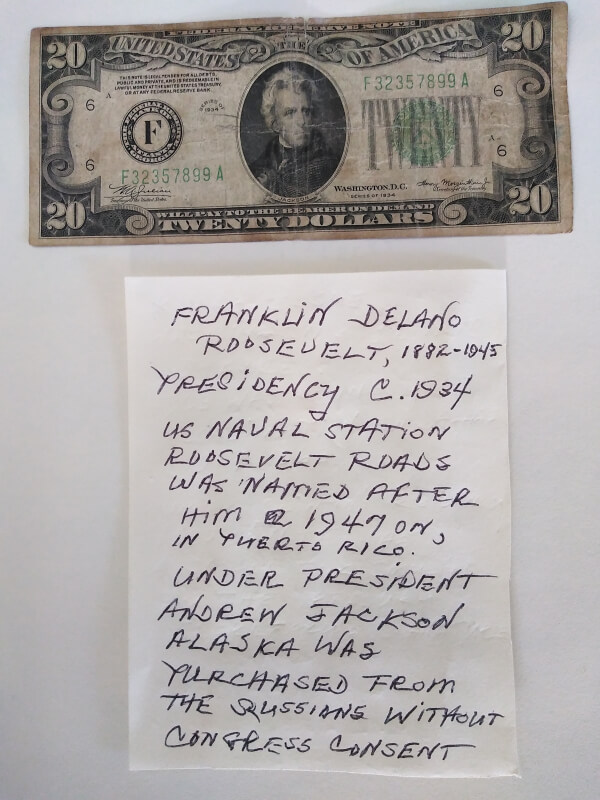 FEDERAL RESERVE NOTE
20 20
UNITED STATES THE OF AMERICA
THIS NOTE IS LEGAL TENDER FOR ALL DEBTS,
PUBLIC AND PRIVATE, AND IS REDEEMABLE IN
LAWFUL MONEY AT THE UNITED STATES TREASURY,
OR AT ANY FEDERAL RESERVE BANK.
F32357899A
6 A
SERIES OF
1934
F
TWENTY
6
6
F32357899A
JACKSON
WASHINGTON, D.C.
SERIES OF 1934
20 20
WILL PAY TO THE BEARER ON DEMAND
TWENTY DOLLARS
FRANKLIN DELANO
ROOSEVELT, 1882-1945
PRESIDENCY C. 1934
US NAVAL STATION
ROOSEVELT ROADS
WAS NAMED AFTER
HIM 1947 ON,
IN PUERTO RICO.
UNDER PRESIDENT
ANDREW JACKSON
ALASKA WAS
PURCHASED FROM
THE RUSSIANS WITHOUT
CONGRESS CONSENT